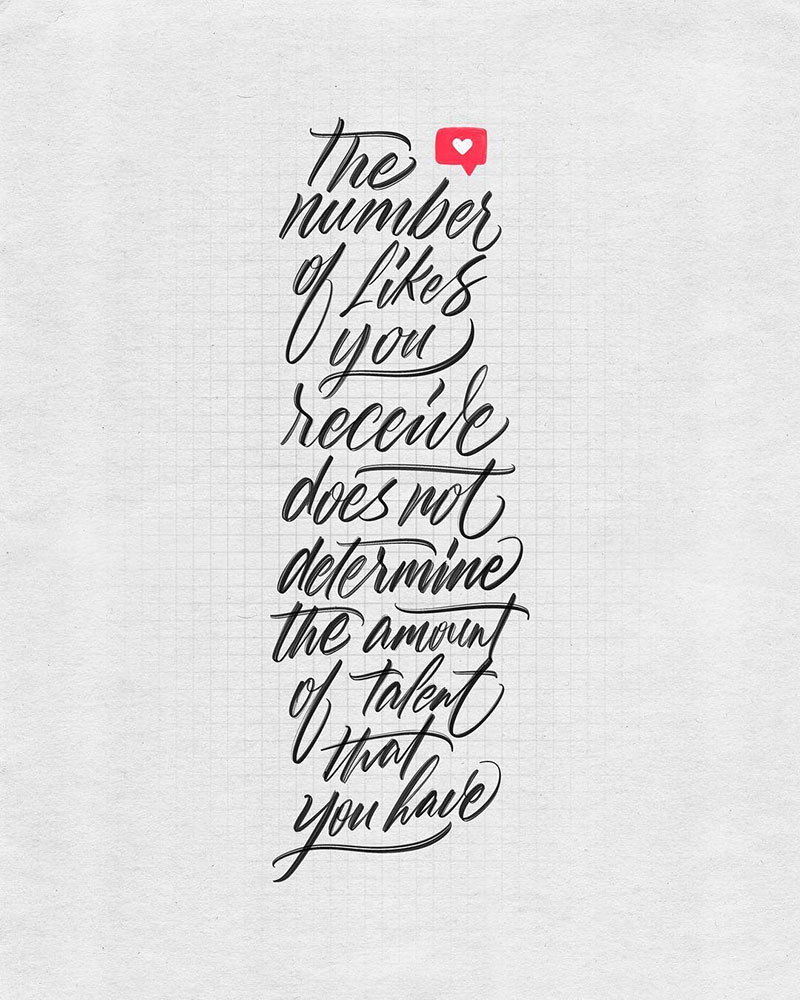 The
number
of likes
you
receive
does not
determine
the amount
of talent
that
you have